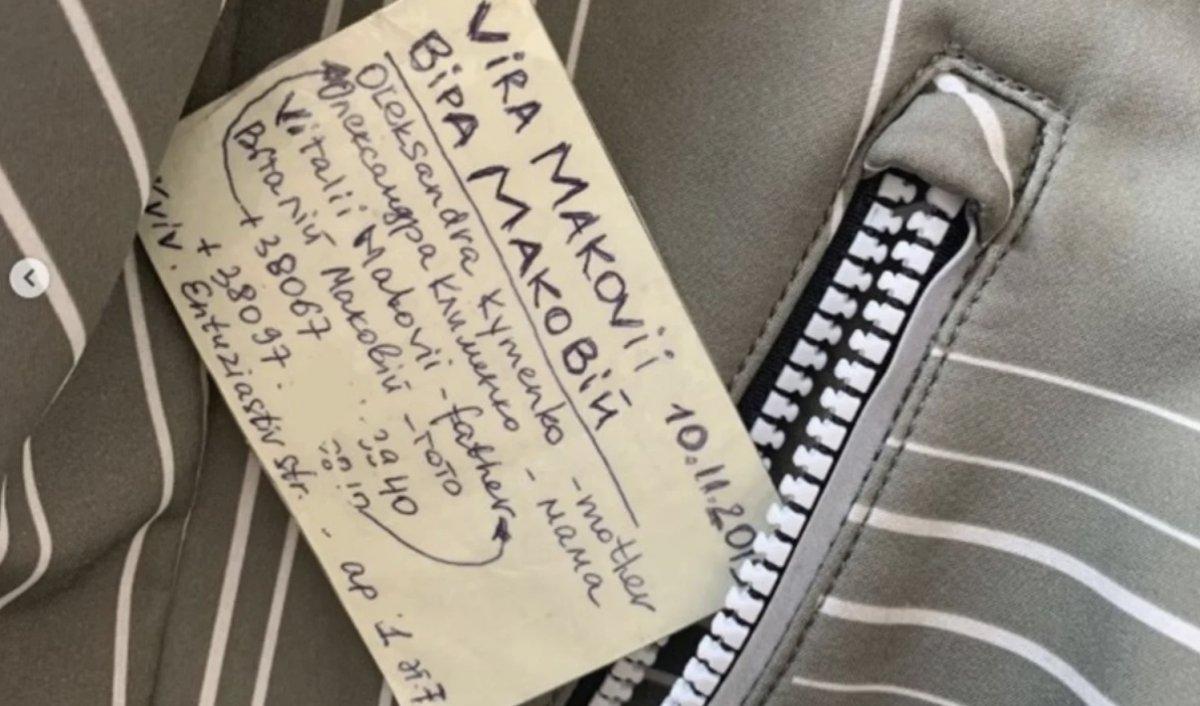 VIRA MAKOVII 10.11.201
ВІРА МАКОВІЙ
Oleksandra Kymenko - mother
Олександра Клименко - мама
Vitalii Makovii - father
Віталій Маковій - тато
+38067
+38097
Entuziastiv str. - ap 1